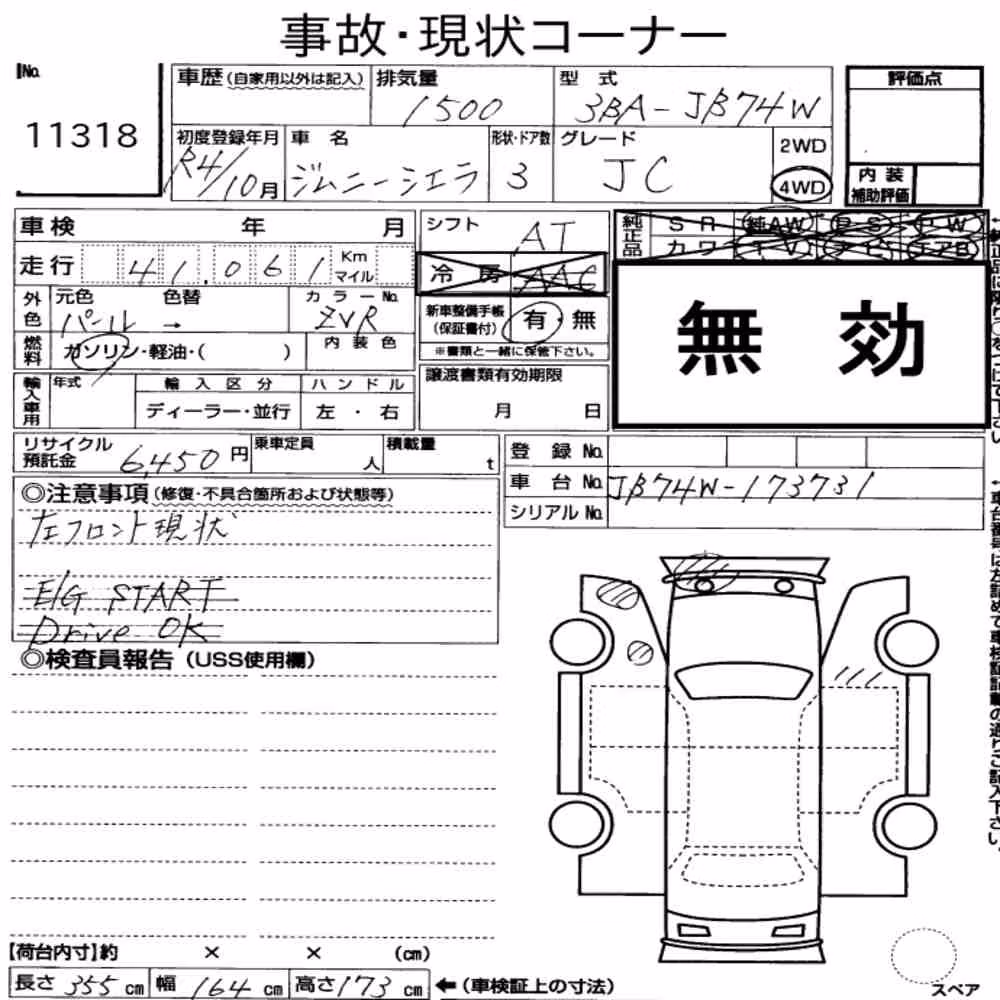 事故・現状コーナー
No.
11318
車歴(自家用以外は記入)
排気量
1500
型式
3BA-JB74W
評価点
初度登録年月
R4/10月
車名
ジムニーシエラ
形状・ドア数
3
グレード
JC
2WD
4WD
内装
補助評価
車検 年 月
シフト
AT
純正品
SR 純AW PS PW
カワ TV ナビ エアB
走行
41,061
Km
マイル
冷房 AAC
外色
元色 色替
パール →
カラーNo.
ZVR
新車整備手帳
(保証書付)
有・無
※書類と一緒に保管下さい。
無効
燃料
ガソリン・軽油・( )
内装色
輸入車用
年式
輸入区分
ディーラー・並行
ハンドル
左・右
譲渡書類有効期限
月 日
リサイクル
預託金
6,450円
乗車定員
人
積載量
t
登録No.
車台No.
JB74W-173731
シリアルNo.
◎注意事項(修復・不具合箇所および状態等)
左フロント現状
E/G START
Drive OK
◎検査員報告(USS使用欄)
【荷台内寸】約 × × (cm)
長さ 355 cm 幅 164 cm 高さ 173 cm ←(車検証上の寸法)
スペア
↓車台番号は左詰めで車検証記載の通りご記入下さい。